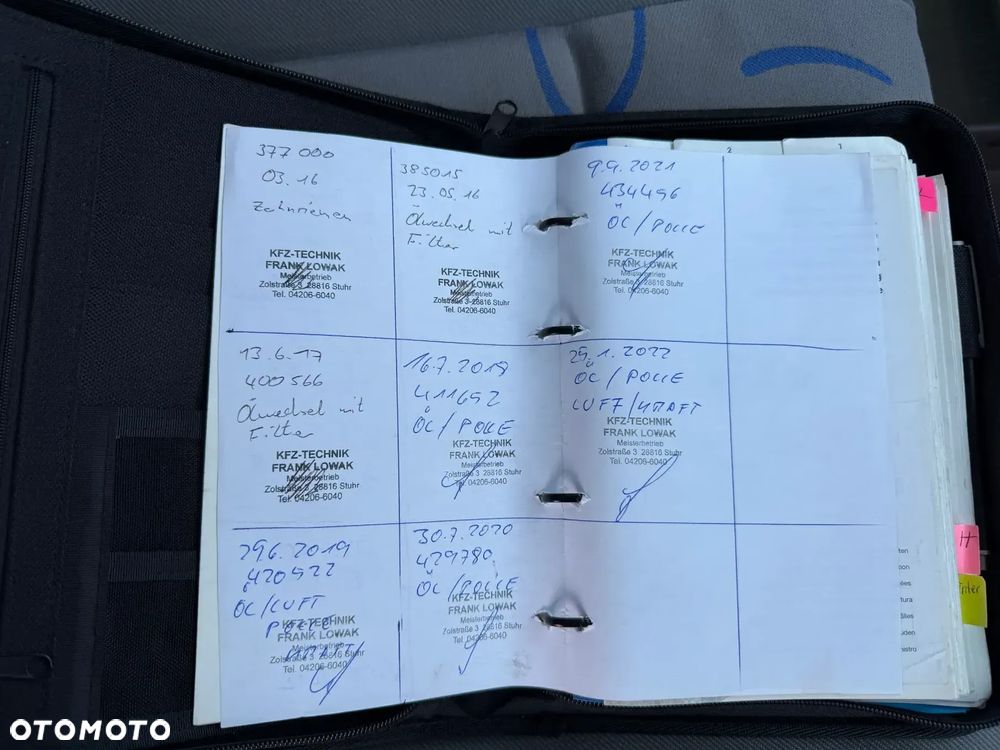 377 000
03.16
Zahnriemen
KFZ-TECHNIK
FRANK LOWAK
Meisterbetrieb
Zolstraße 3 28816 Stuhr
Tel. 04206-6040
385015
23.05.16
Ölwechsel mit
Filter
KFZ-TECHNIK
FRANK LOWAK
Meisterbetrieb
Zolstraße 3 28816 Stuhr
Tel. 04206-6040
9.9.2021
434496
ÖL/POLLE
KFZ-TECHNIK
FRANK LOWAK
Meisterbetrieb
Zolstraße 3 28816 Stuhr
Tel. 04206-6040
13.6.17
400566
Ölwechsel mit
Filter
KFZ-TECHNIK
FRANK LOWAK
Meisterbetrieb
Zolstraße 3 28816 Stuhr
Tel. 04206-6040
16.7.2018
411652
ÖL/POLLE
KFZ-TECHNIK
FRANK LOWAK
Meisterbetrieb
Zolstraße 3 28816 Stuhr
Tel. 04206-6040
29.1.2022
ÖL/POLLE
LUFT/KRAFT
KFZ-TECHNIK
FRANK LOWAK
Meisterbetrieb
Zolstraße 3 28816 Stuhr
Tel. 04206-6040
29.6.2019
420522
ÖL/LUFT
POLLE
KRAFT
KFZ-TECHNIK
FRANK LOWAK
Meisterbetrieb
Zolstraße 3 28816 Stuhr
Tel. 04206-6040
30.7.2020
429780
ÖL/POLLE
KFZ-TECHNIK
FRANK LOWAK
Meisterbetrieb
Zolstraße 3 28816 Stuhr
Tel. 04206-6040
2
1
H
OTOMOTO